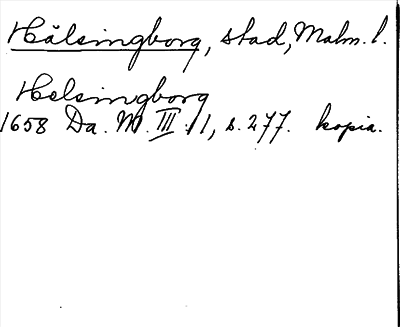 Hälsingborg, stad, Malm. l.
Helsingborg
1658 Da. M. III:1, s. 277. kopia.